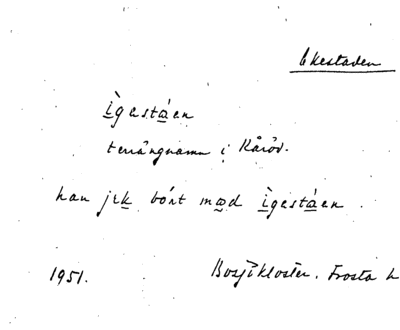 Ekestaden
ìgestáen
terrängnamn i Kåröd.
han jek bórt mœd ìgestáen.
1951. Bosjökloster. Frosta h